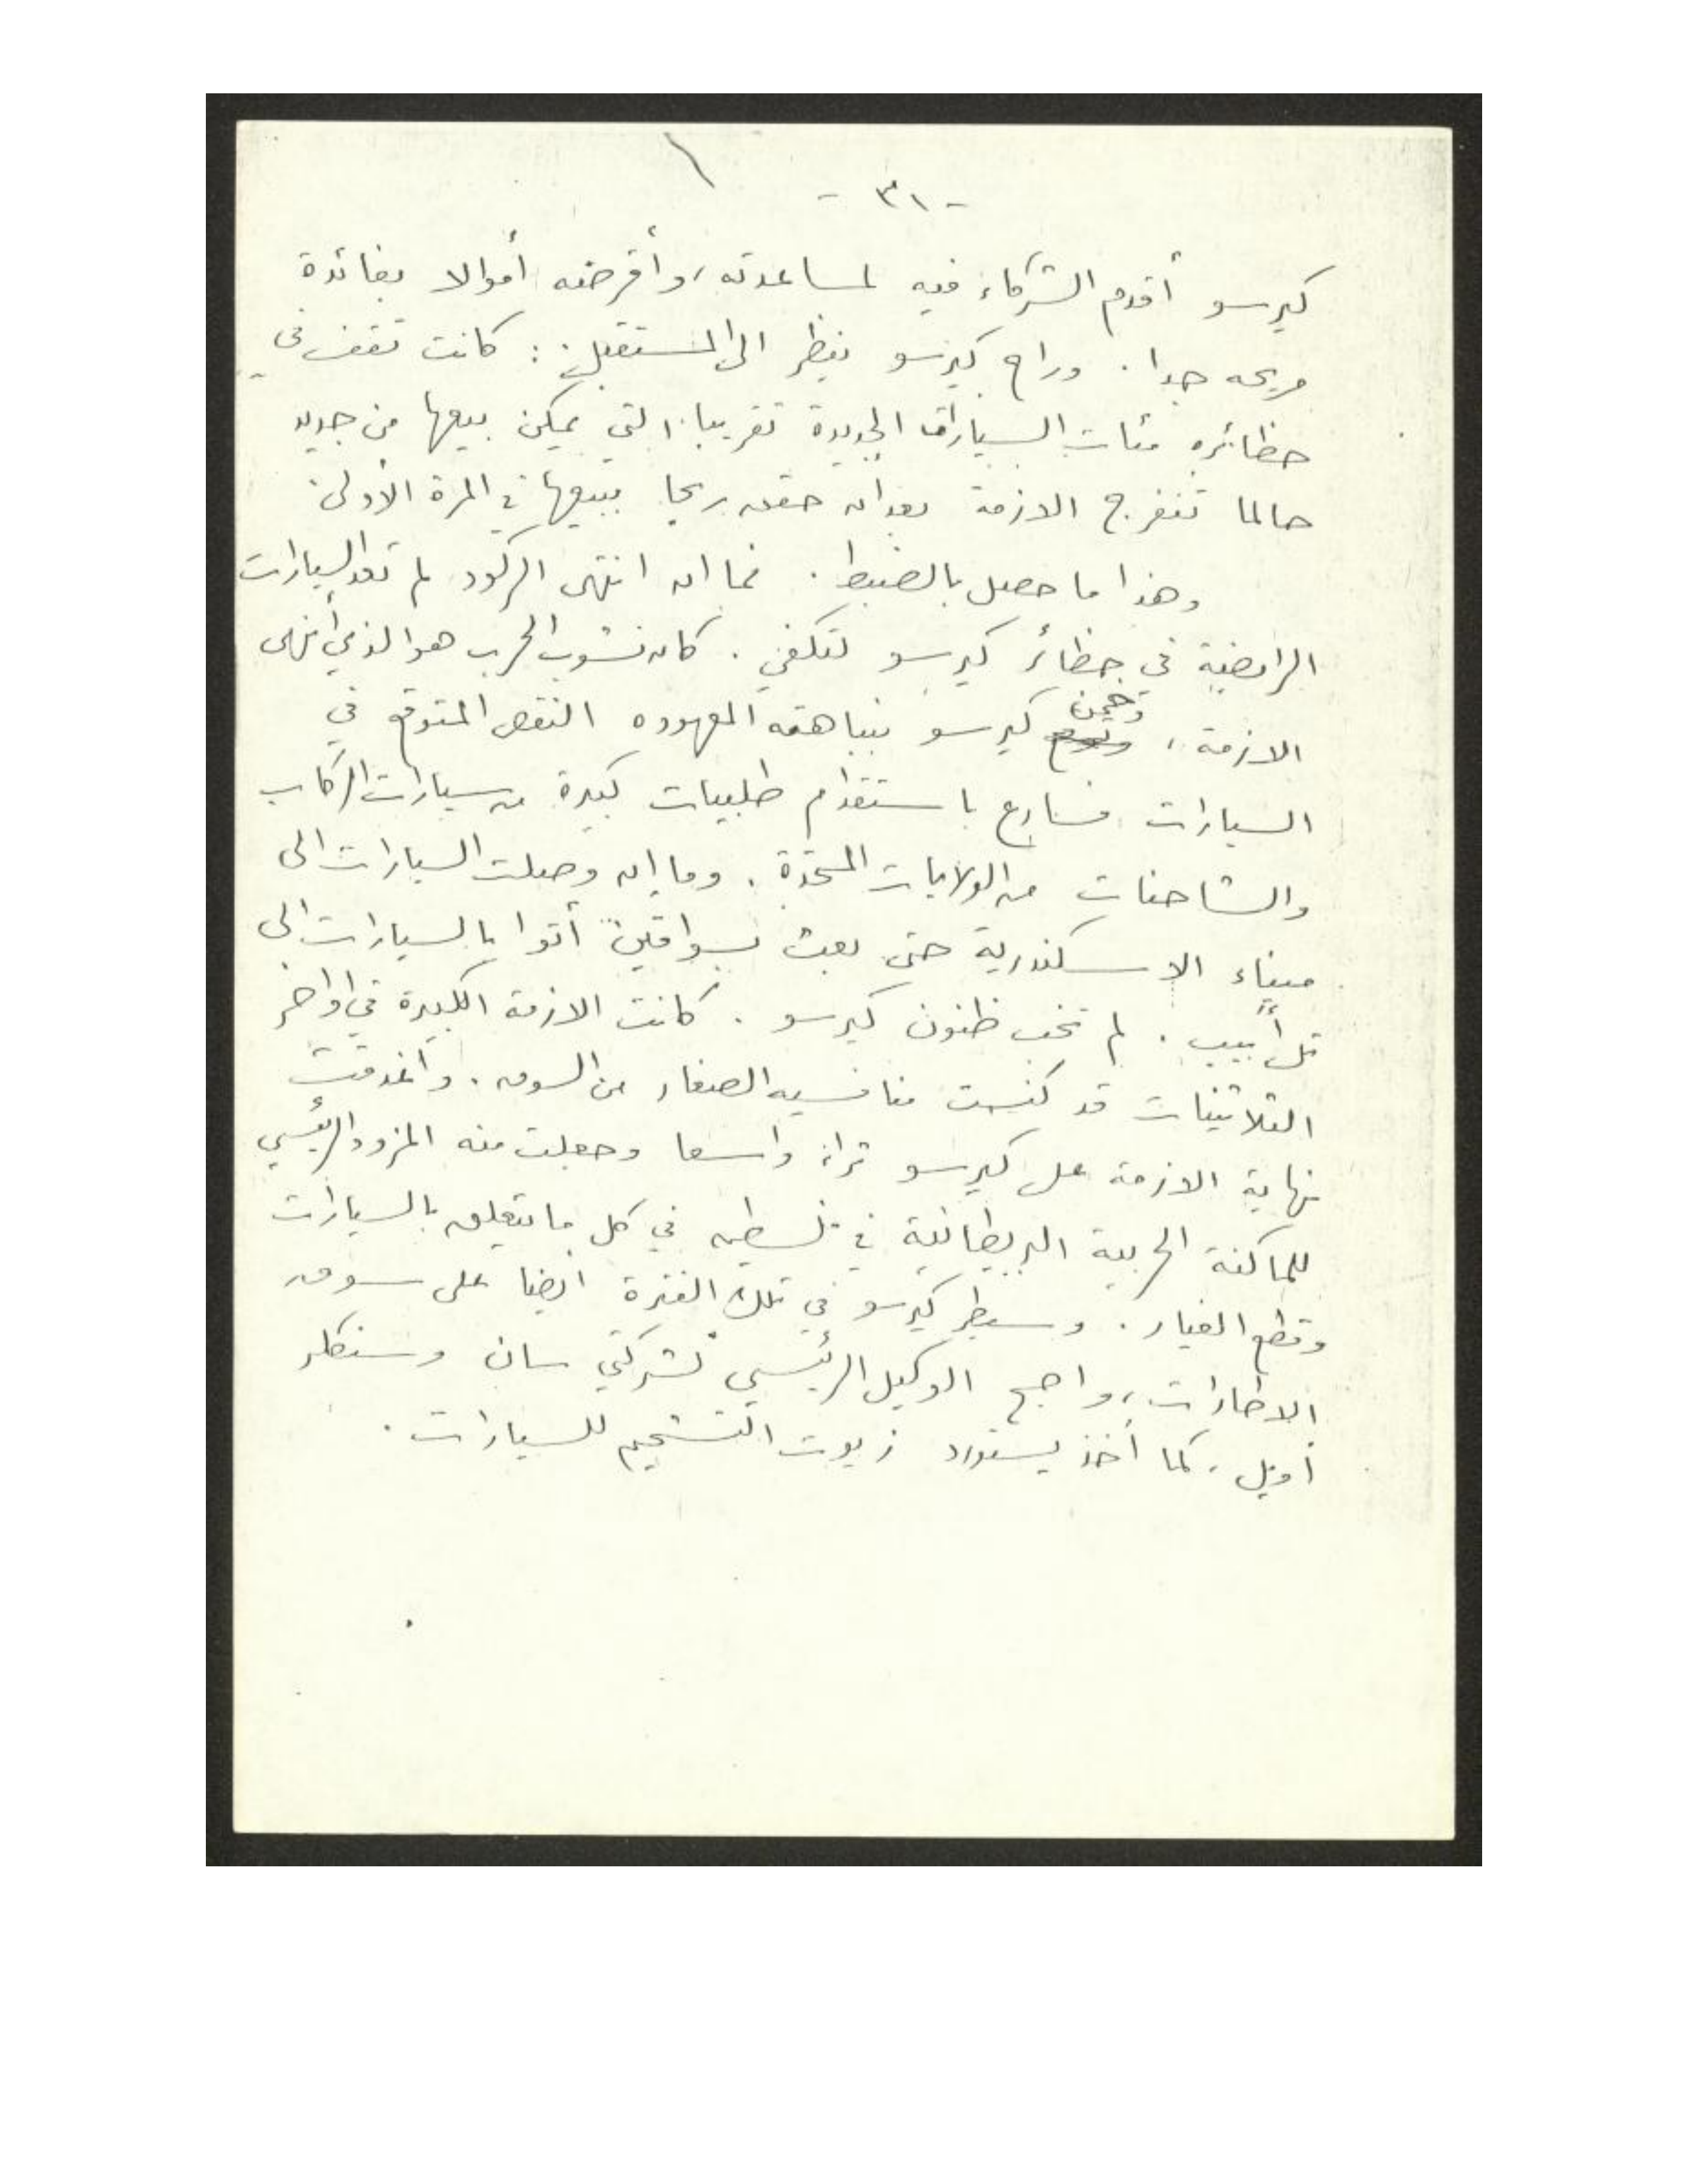 - ٣١ -
كيرسو أقدم الشركاء فيه لمساعدته، وأقرضته أموالا بفائدة
مريحه جدا. وراح كيرسو ينظر الى المستقبل: كانت تقف في
حظائره مئات السيارات الجديدة تقريبا، التي يمكن بيعها من جديد
حالما تنفرج الازمة بعد ان حقق ربحا ببيعها في المرة الأولى.
وهذا ما حصل بالضبط. فما ان انتهى الركود لم تعد السيارات
الرابضة في حظائر كيرسو لتكفي. كان نشوب الحرب هو الذي أنهى
الازمة، وخمن كيرسو بنباهته المعهوده النقص المتوقع في
السيارات فسارع باستقدام طلبيات كبيرة من سيارات الركاب
والشاحنات من الولايات المتحدة. وما ان وصلت السيارات الى
ميناء الاسكندرية حتى بعث بسواقين أتوا بالسيارات الى
تل أبيب. لم تخب ظنون كيرسو. كانت الازمة الكبيرة في اواخر
الثلاثينات قد كنست منافسيه الصغار من السوق. واغدقت
نهاية الازمة على كيرسو ثراء واسعا وجعلت منه المزود الرئيسي
للماكنة الحربية البريطانية في فلسطين في كل ما يتعلق بالسيارات
وقطع الغيار. وسيطر كيرسو في تلك الفترة ايضا على سوق
الاطارات، واصبح الوكيل الرئيسي لشركتي سان وسنكلر
أويل، كما أخذ يستورد زيوت التشحيم للسيارات.